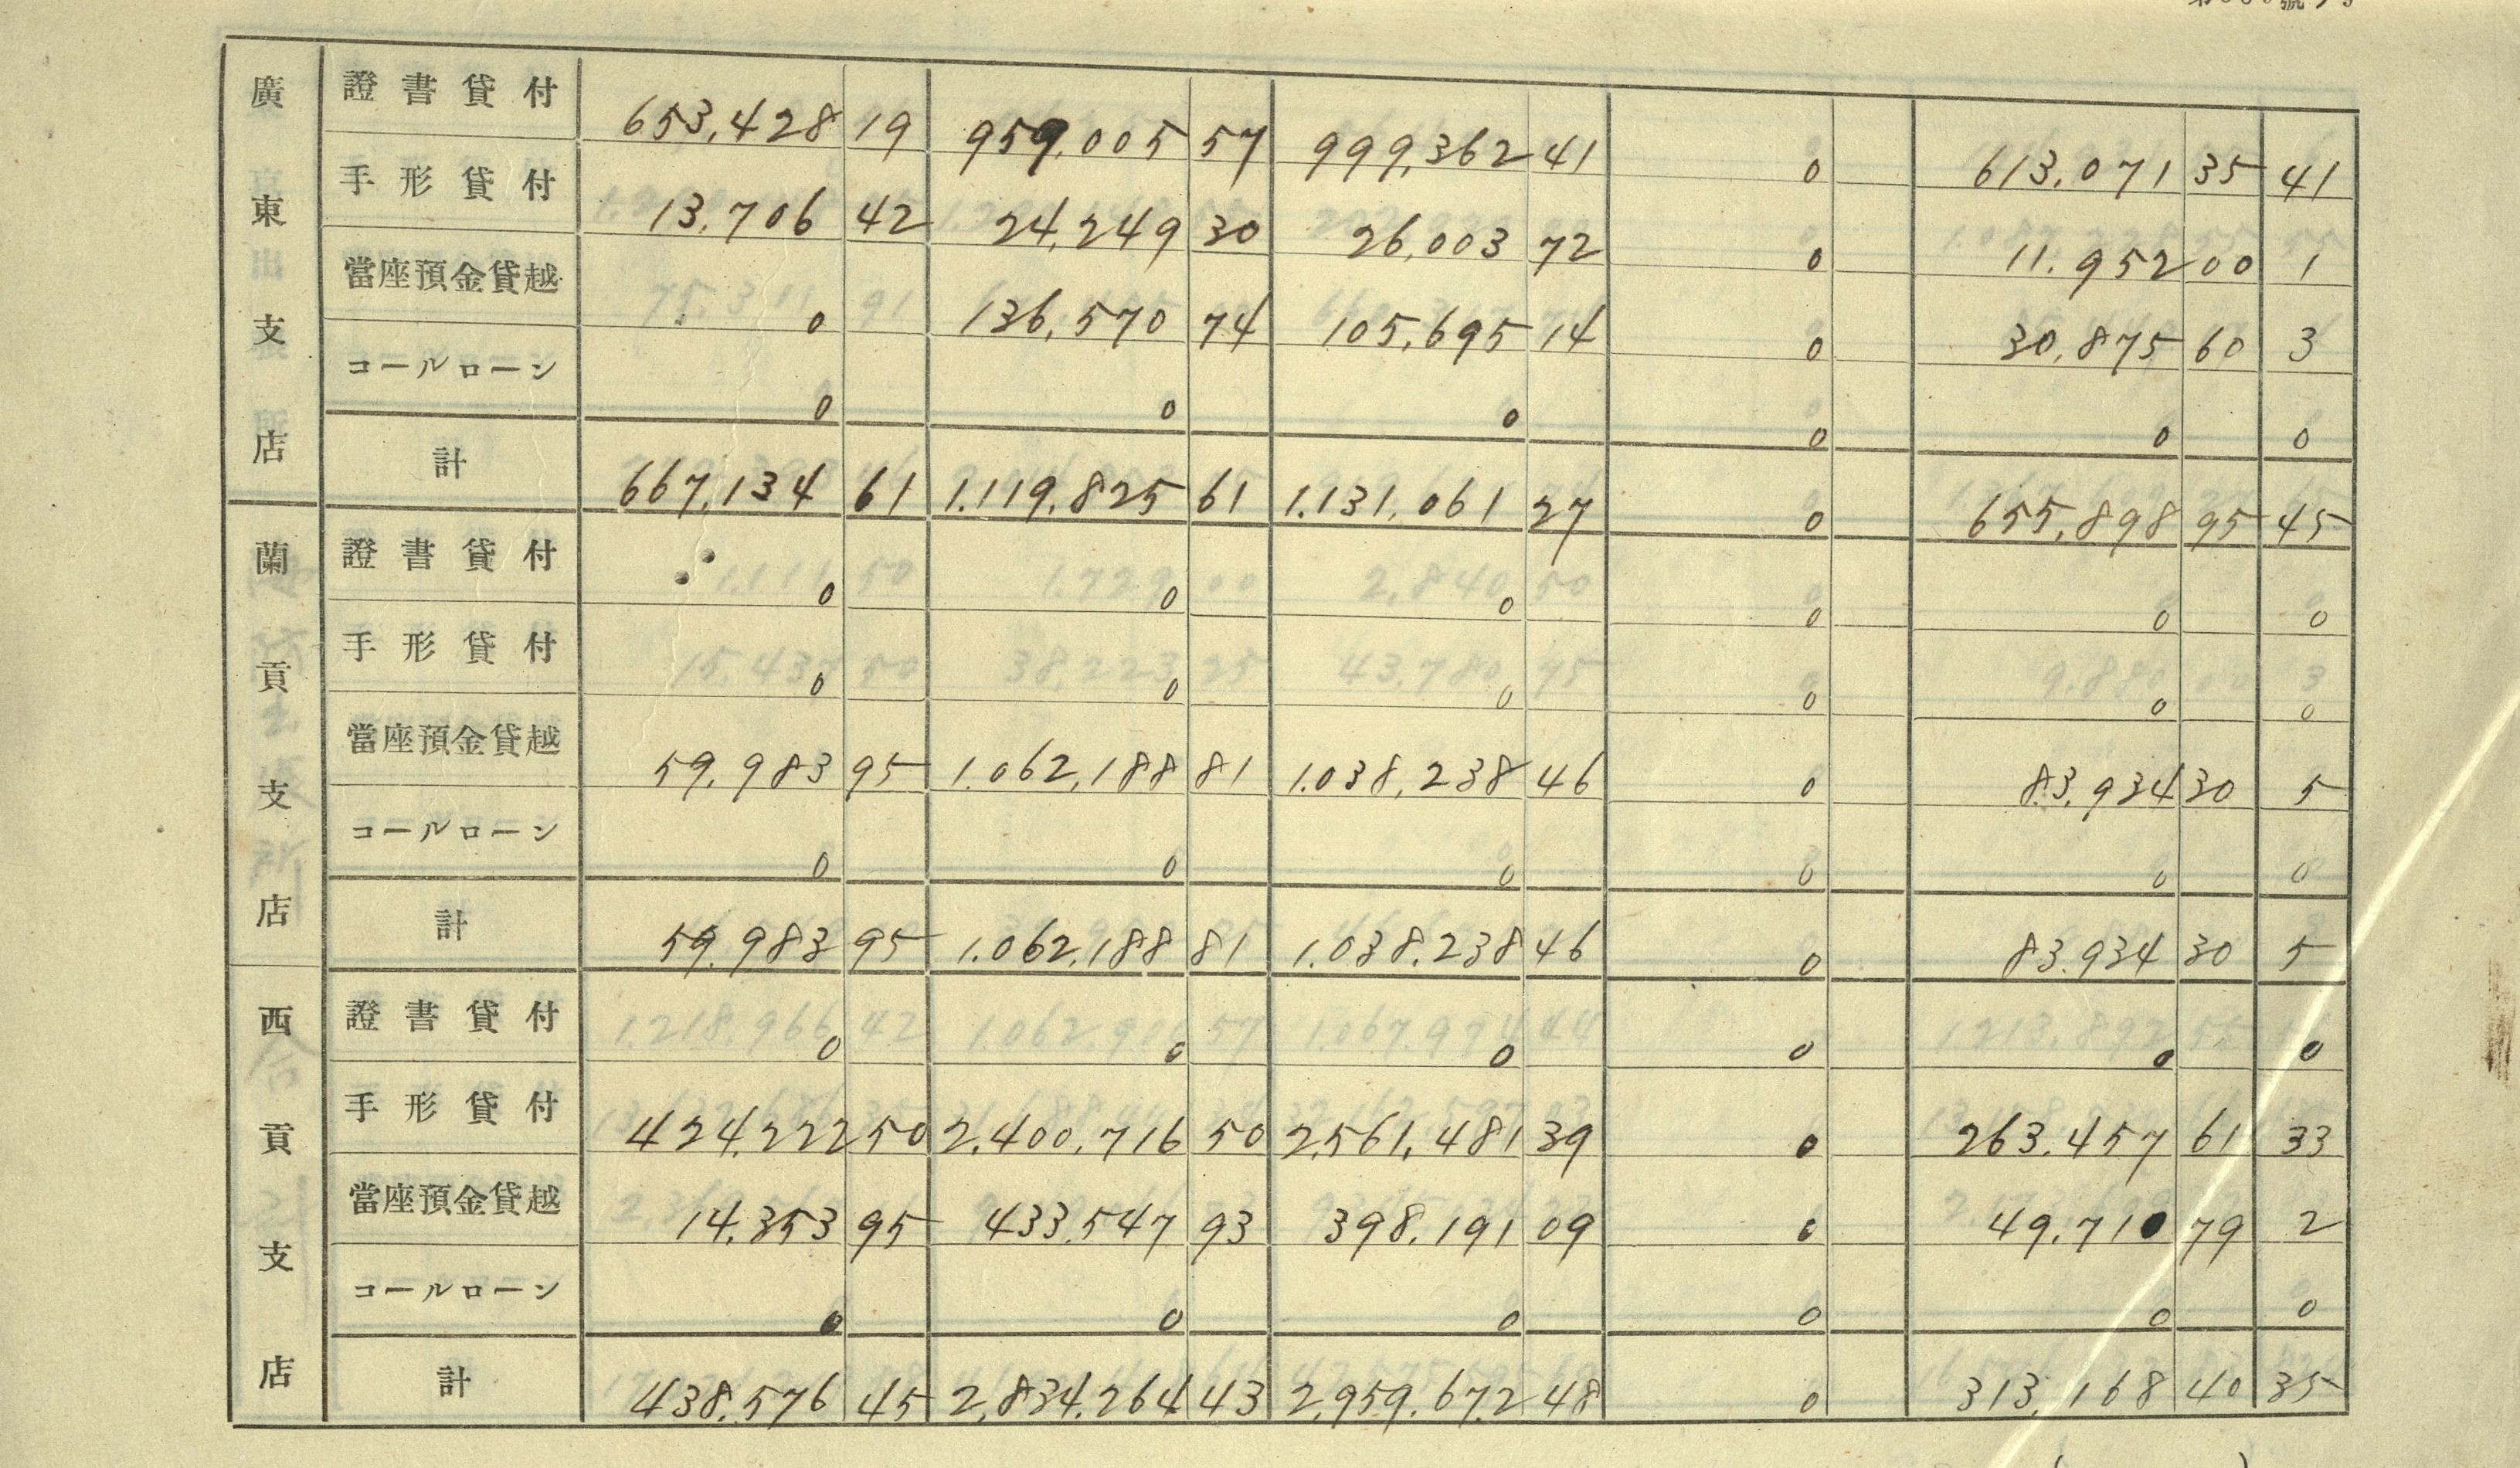 廣東支店
證書貸付 653,428 19 959,005 57 999,362 41 0 613,071 35 41
手形貸付 13,706 42 24,249 30 26,003 72 0 11,952 00 1
當座預金貸越 0 136,570 74 105,695 14 0 30,875 60 3
コールローン 0 0 0 0 0 0
計 667,134 61 1,119,825 61 1,131,061 27 0 655,898 95 45
蘭貢支店
證書貸付 0 0 0 0 0 0
手形貸付 0 0 0 0 0 0
當座預金貸越 59,983 95 1,062,188 81 1,038,238 46 0 83,934 30 5
コールローン 0 0 0 0 0 0
計 59,983 95 1,062,188 81 1,038,238 46 0 83,934 30 5
西貢支店
證書貸付 0 0 0 0 0 0
手形貸付 424,222 50 2,400,716 50 2,561,481 39 0 263,457 61 33
當座預金貸越 14,353 95 433,547 93 398,191 09 0 49,710 79 2
コールローン 0 0 0 0 0 0
計 438,576 45 2,834,264 43 2,959,672 48 0 313,168 40 35